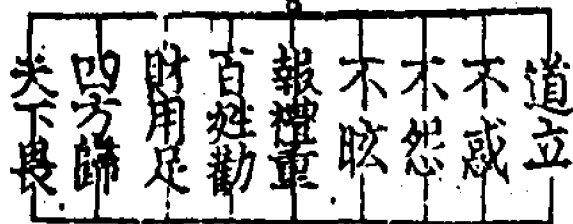 道立
不惑
不怨
不眩
報禮重
百姓勸
財用足
四方歸
天下畏